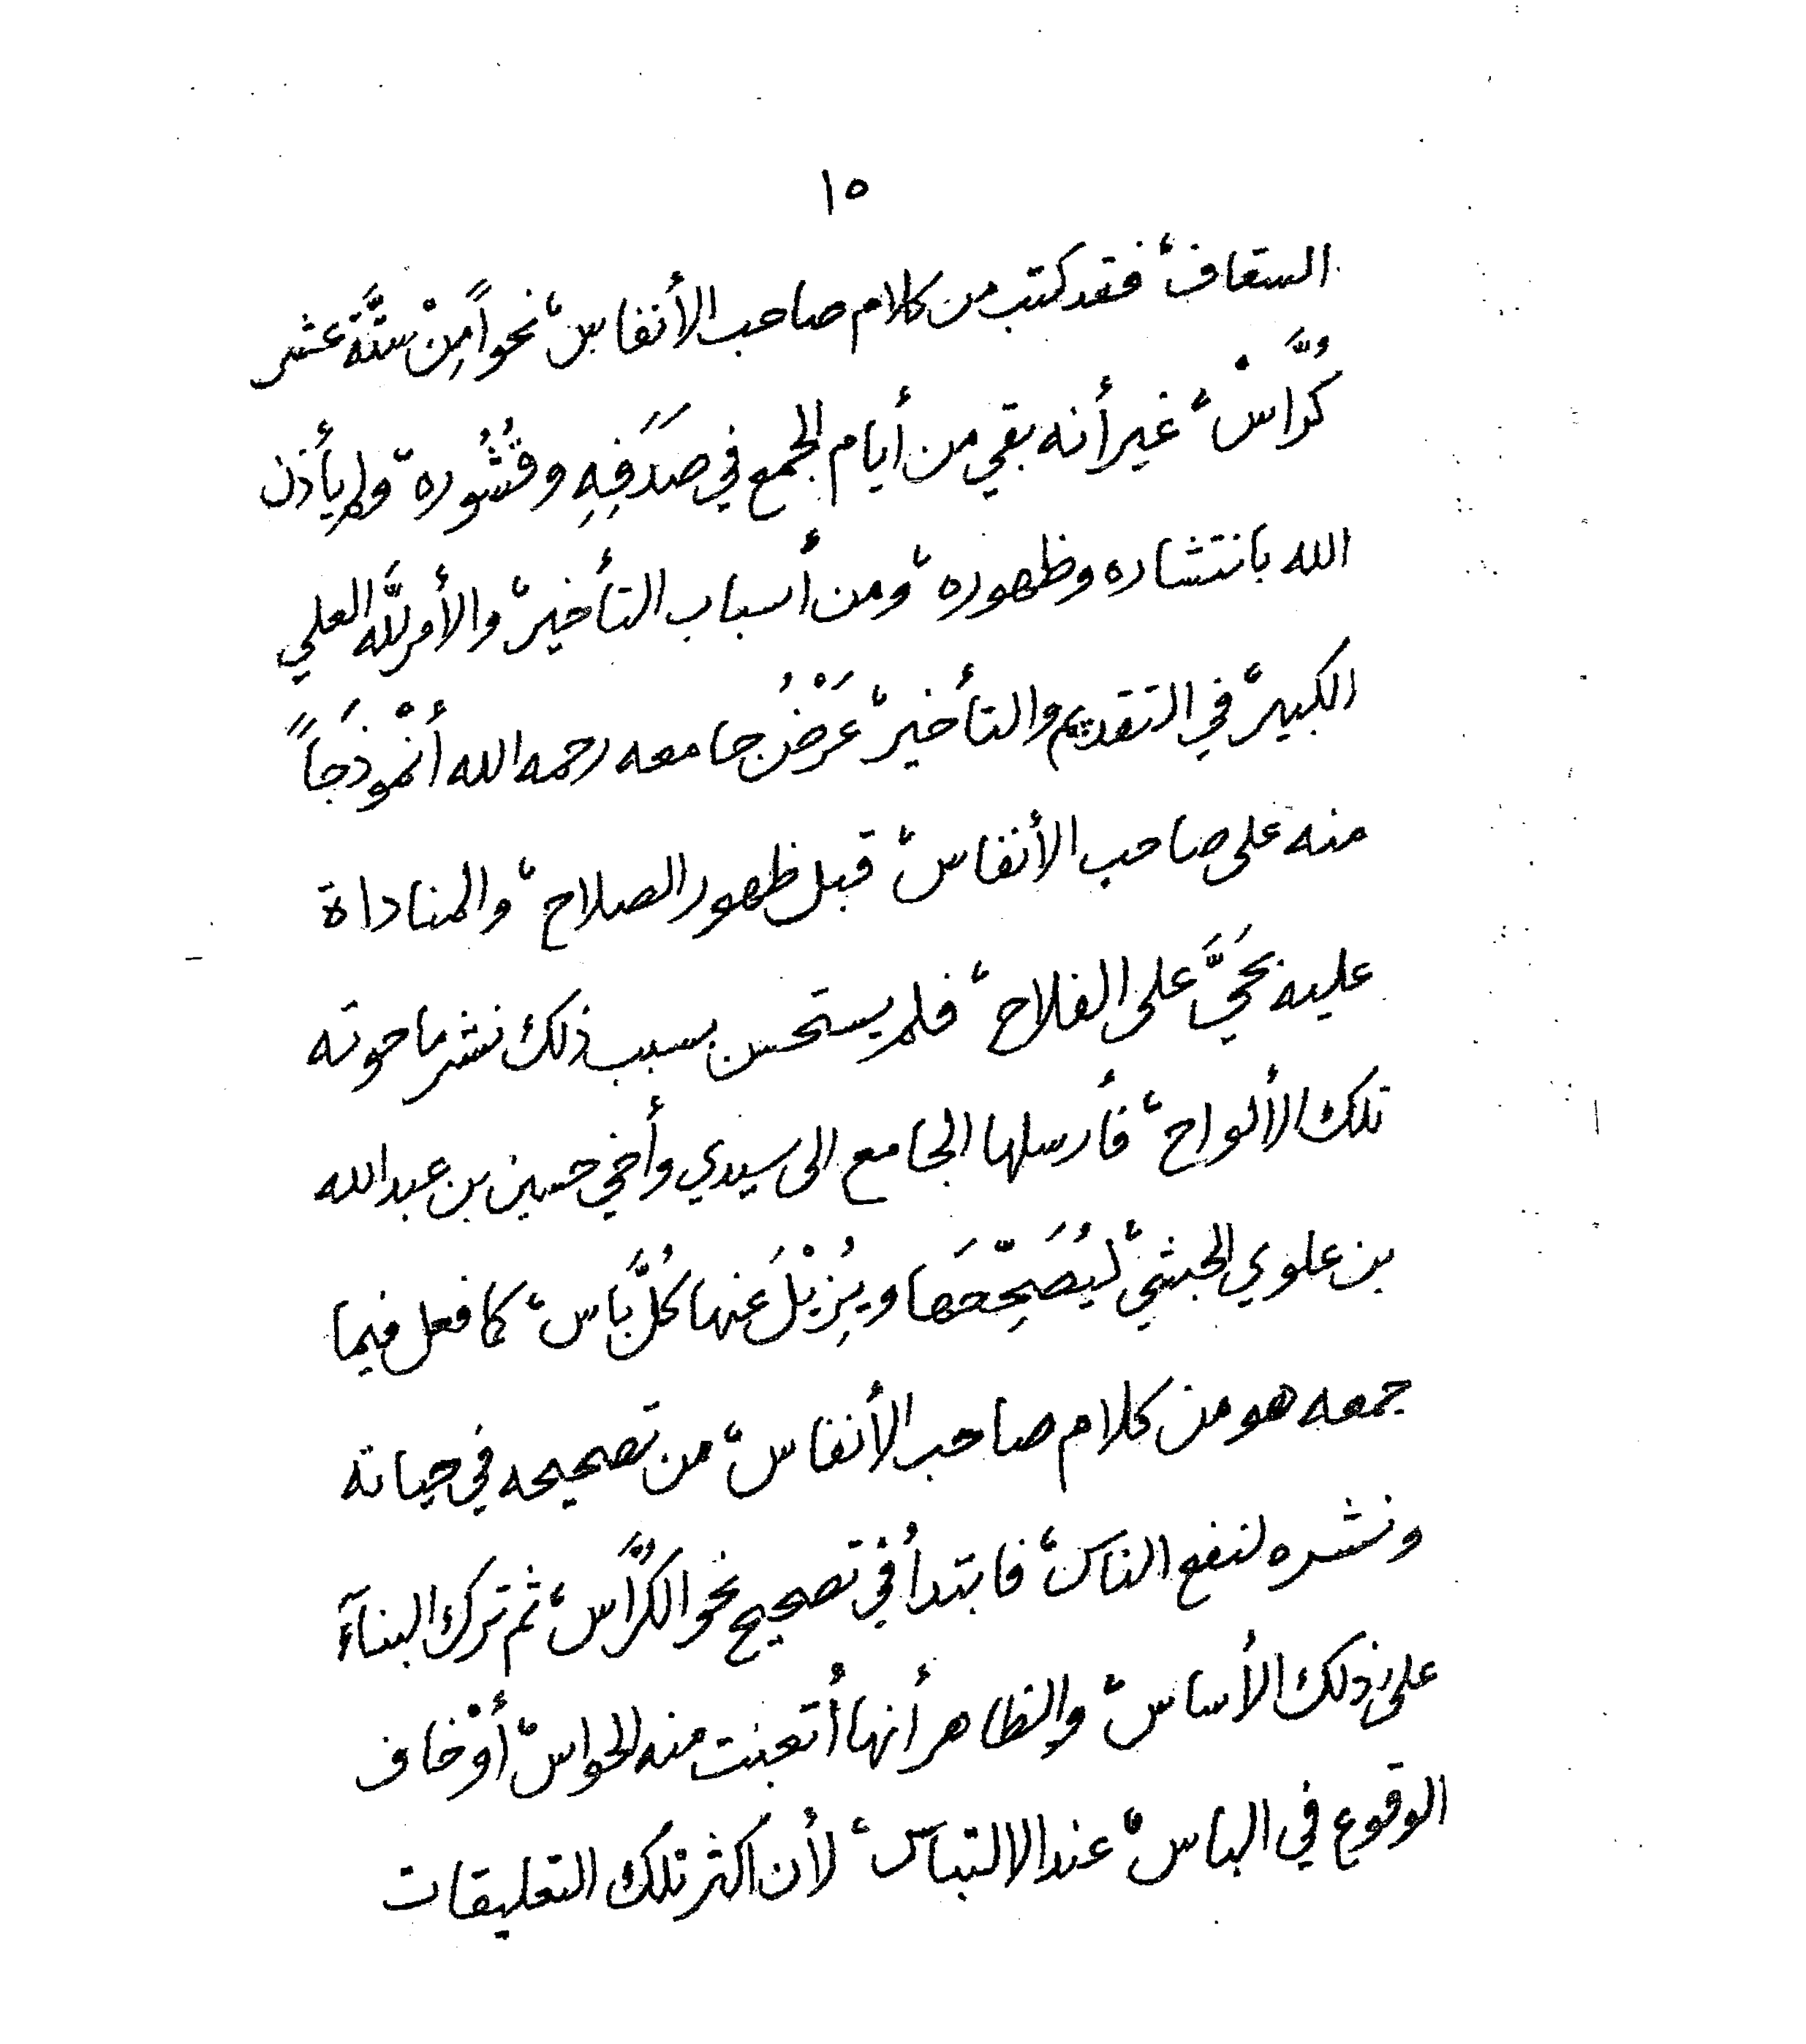 ١٥
السقاف، فقد كتب من كلام صاحب الأنفاس، نحواً مِنْ ستَّة عشر
كُرَّاسْ، غير أنه بقي من أيام الجمع في صَدَفِهِ وقُشُوره، ولم يأذن
الله بانتشاره وظهوره، ومن أسباب التأخير، والأمر للَّه العلي
الكبير، في التقديم والتأخير، عَرْضُ جامعه رحمه الله أنْموذَجَاً
منه على صاحب الأنفاس، قبل ظهور الصلاح، والمناداة
عليه بحَيَّ على الفلاح، فلم يستحسن بسبب ذلك نشر ما حوته
تلك الألواح، فأرسلها الجامع الى سيدي وأخي حسين بن عبدالله
بن علوي الحبشي، ليُصَحِّحَها ويُزِيْلَ عَنها كُلَّ بَاس، كما فعل فيما
جمعه هو من كلام صاحب الأنفاس، من تصحيحه في حياته
ونشره لنفع الناس، فابتدأ في تصحيح نحو الكرَّاس، ثم ترك البنآء
على ذلك الأساس، والظاهر أنها أتعبت منه الحواس، أوْ خاف
الوقوع في الباس، عند الالتباس، لأن أكثر تلك التعليقات